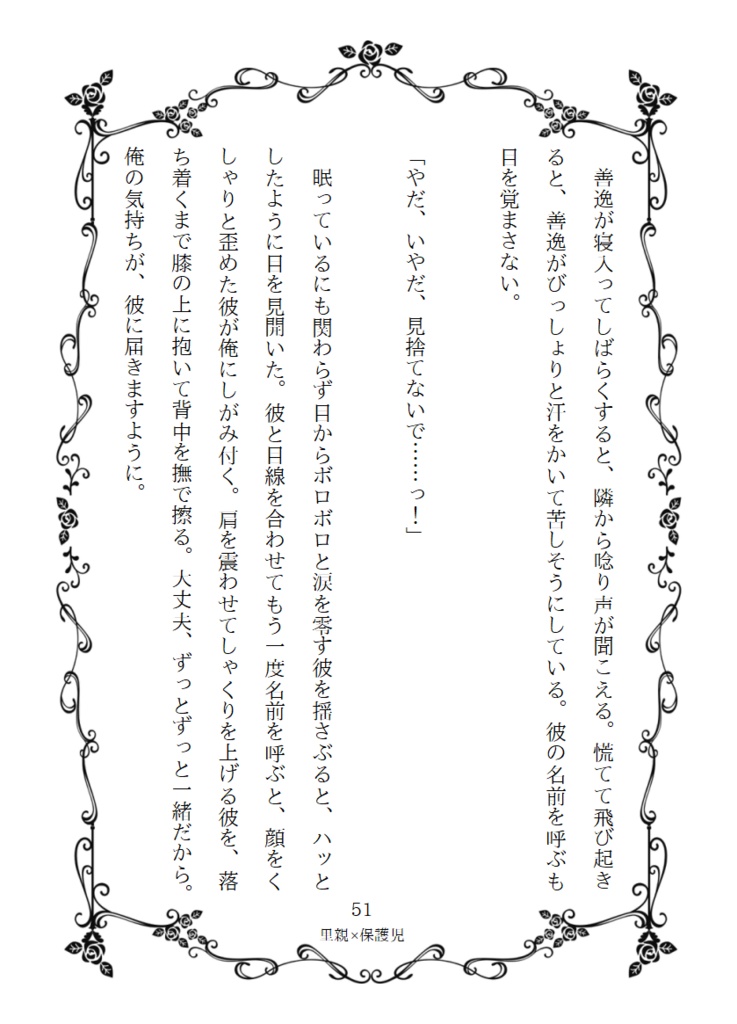 善逸が寝入ってしばらくすると、隣から唸り声が聞こえる。慌てて飛び起き
ると、善逸がびっしょりと汗をかいて苦しそうにしている。彼の名前を呼ぶも
目を覚まさない。
「やだ、いやだ、見捨てないで……っ！」
眠っているにも関わらず目からボロボロと涙を零す彼を揺さぶると、ハッと
したように目を見開いた。彼と目線を合わせてもう一度名前を呼ぶと、顔をく
しゃりと歪めた彼が俺にしがみ付く。肩を震わせてしゃくりを上げる彼を、落
ち着くまで膝の上に抱いて背中を撫で擦る。大丈夫、ずっとずっと一緒だから。
俺の気持ちが、彼に届きますように。
51
里親×保護児